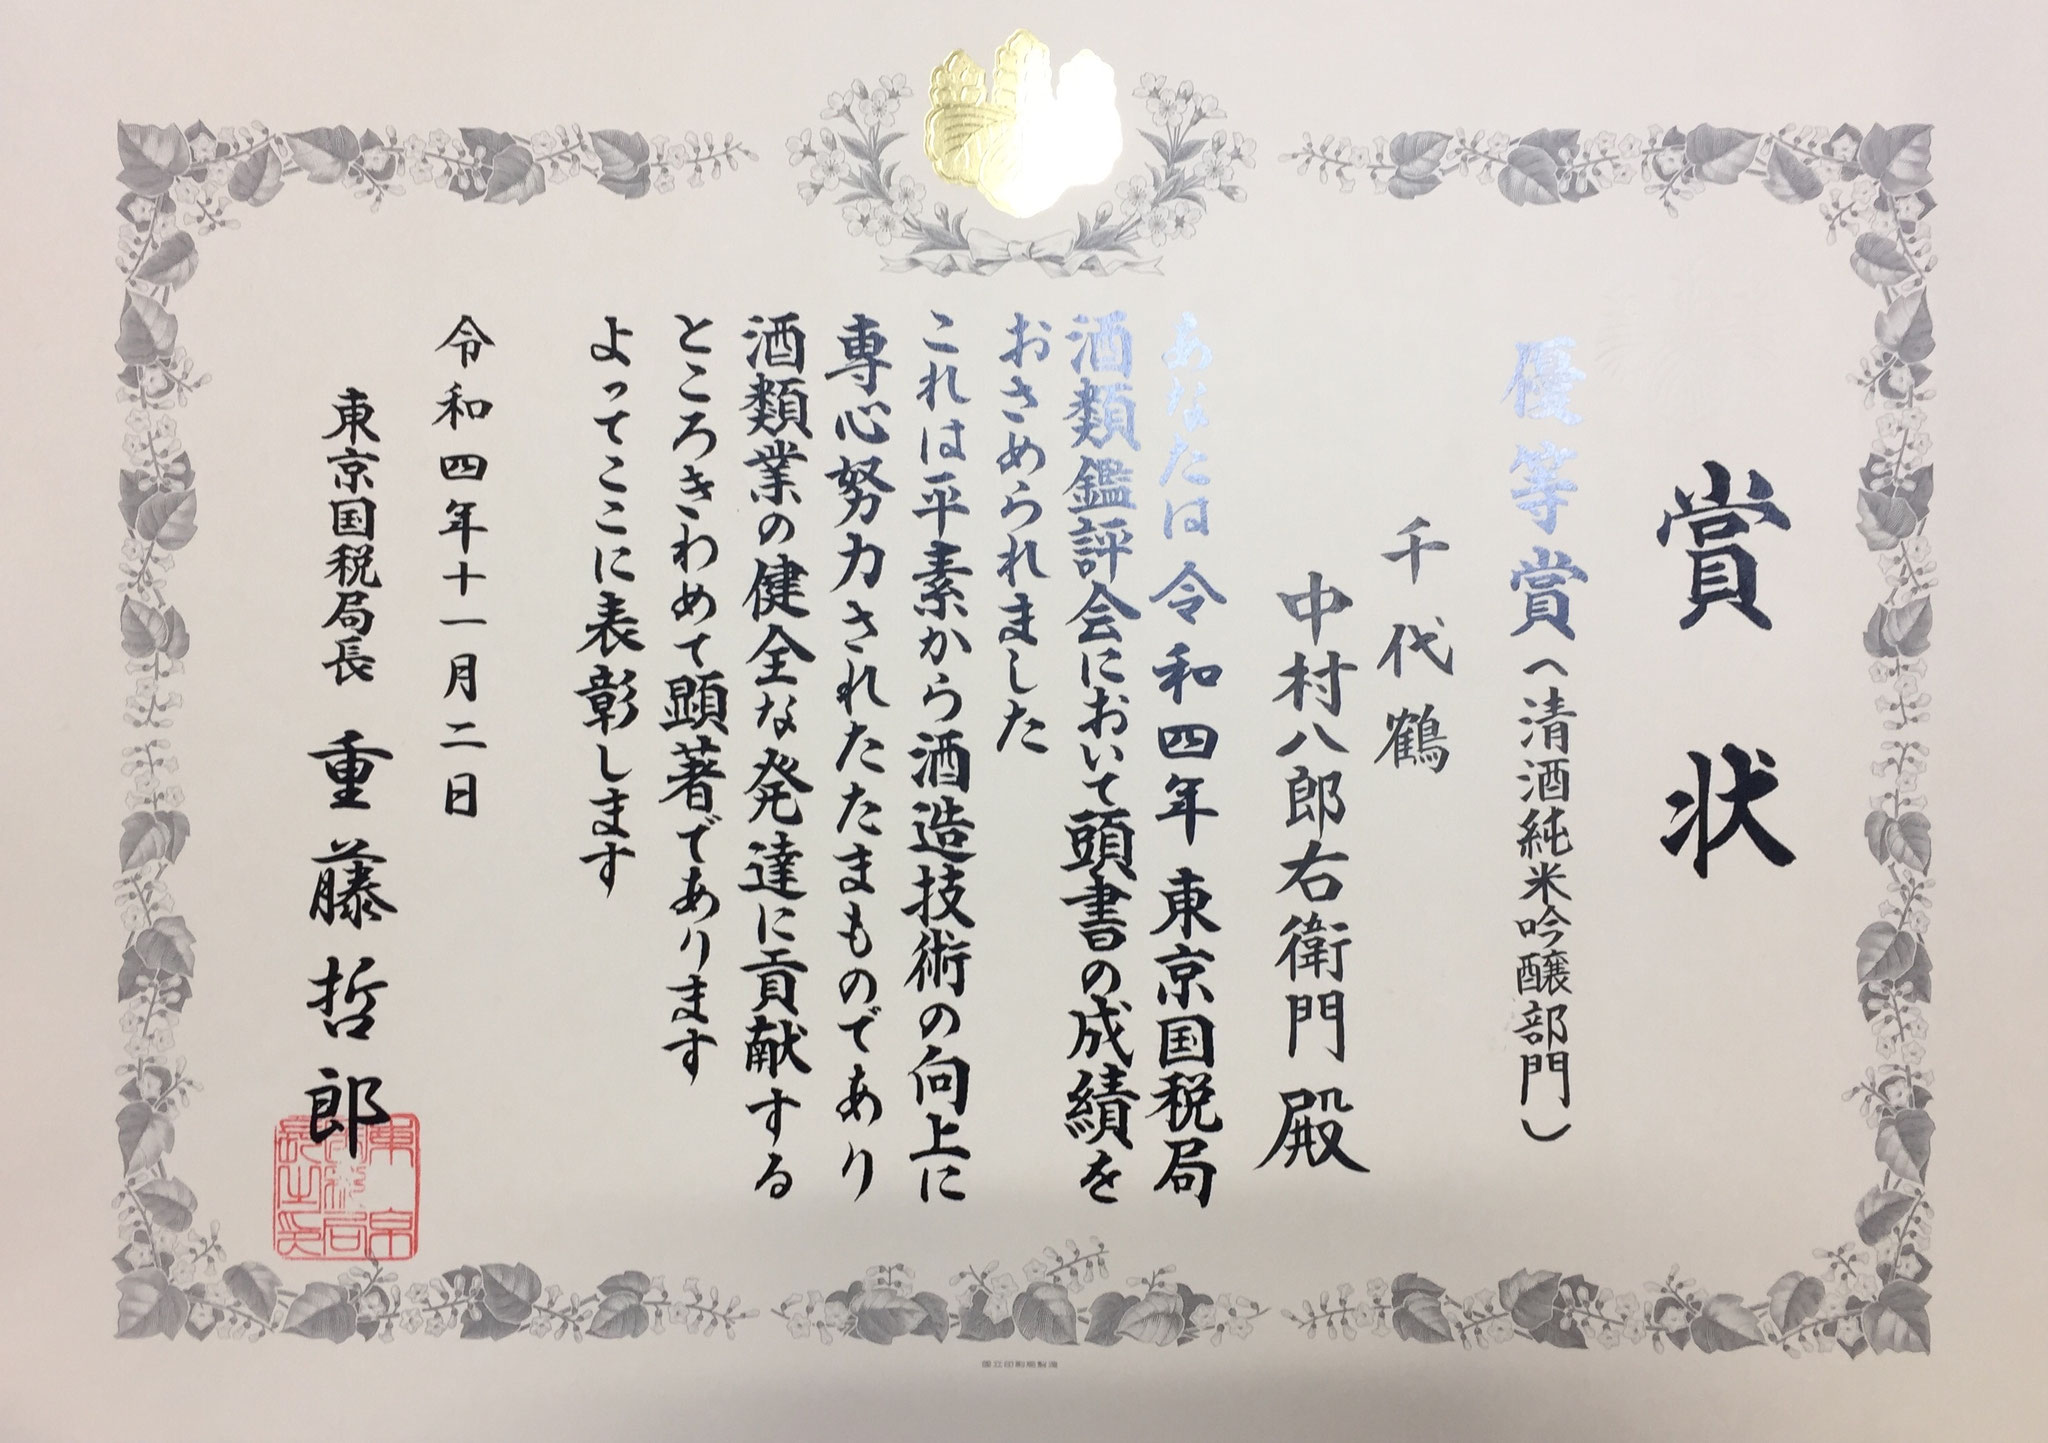 賞状
優等賞（清酒純米吟醸部門）
千代鶴
中村八郎右衛門殿
あなたは令和四年東京国税局
酒類鑑評会において頭書の成績を
おさめられました
これは平素から酒造技術の向上に
専心努力されたたまものであり
酒類業の健全な発達に貢献する
ところきわめて顕著であります
よってここに表彰します
令和四年十一月二日
東京国税局長 重藤哲郎
東京国税局長之印
国立印刷局製造